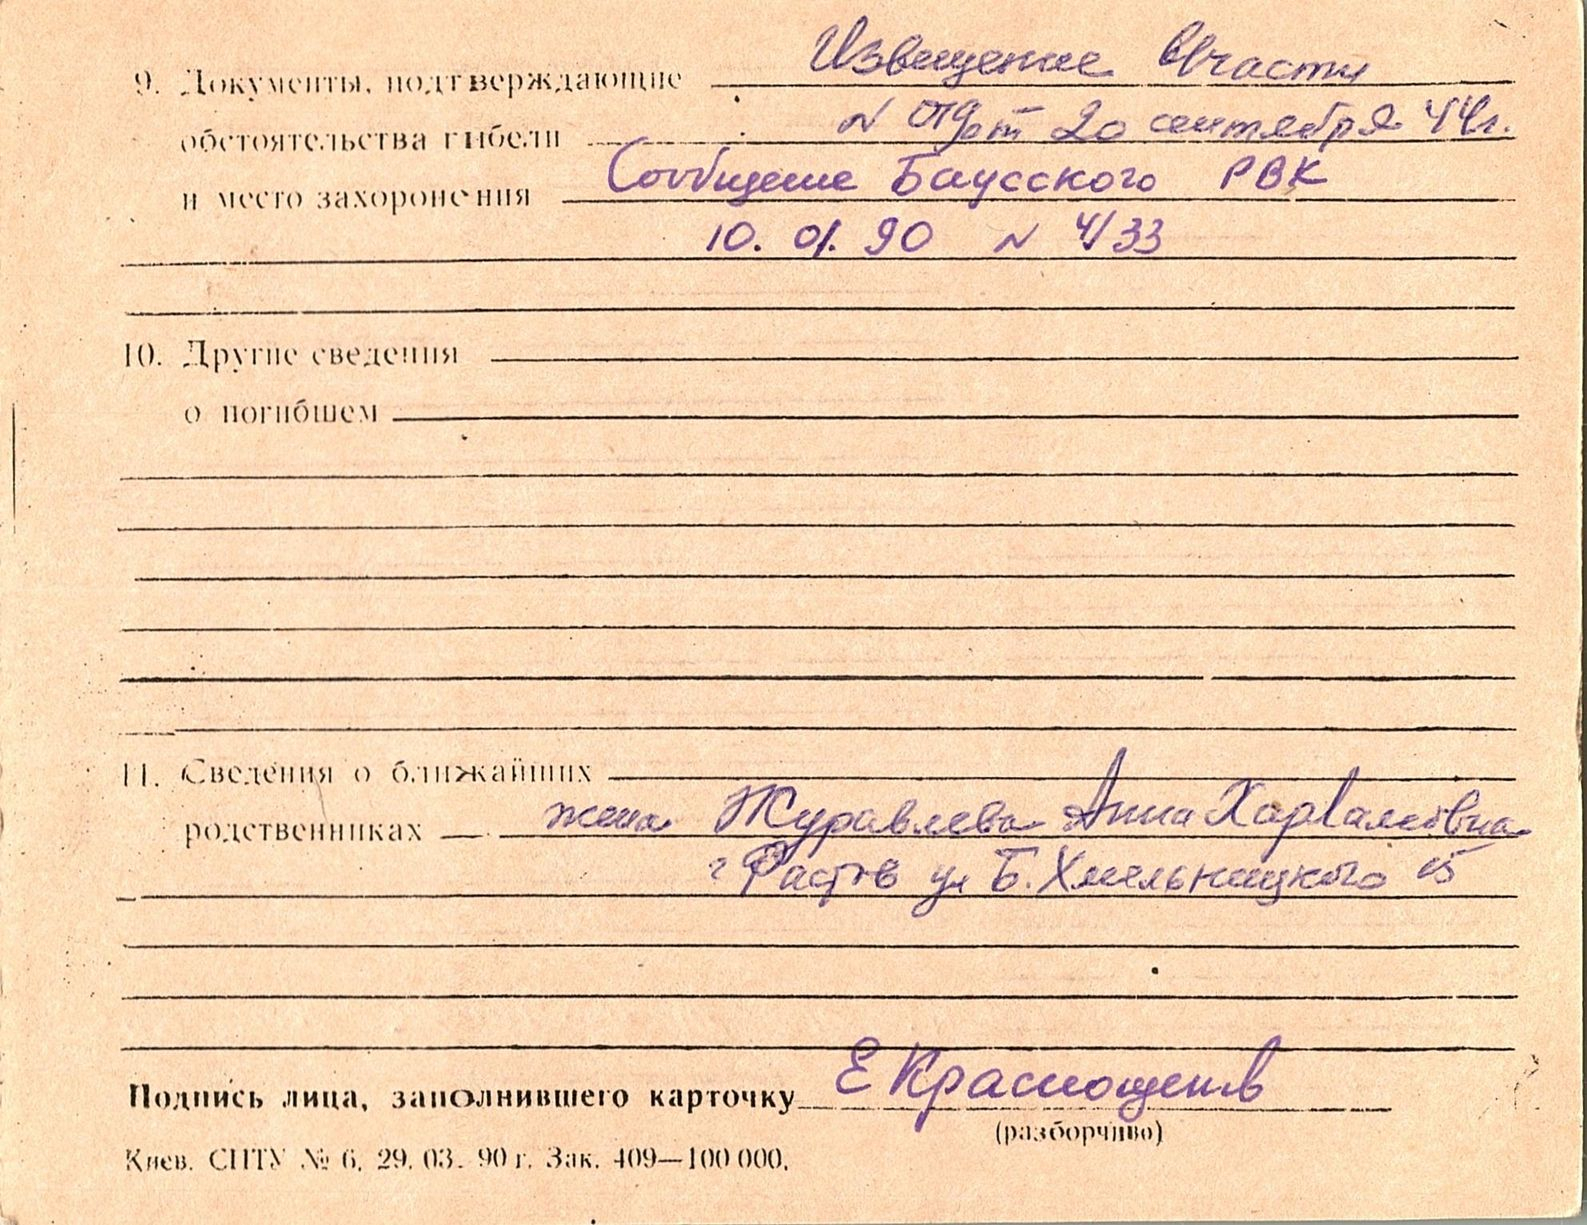 9. Документы, подтверждающие Извещение в/части
обстоятельства гибели N от 20 сентября 44г.
и место захоронения Сообщение Баусского РВК
10.01.90 N 4/33
10. Другие сведения
о погибшем
11. Сведения о ближайших
родственниках жена Журавлева Анна
г Фастов ул Б. Хмельницкого
Подпись лица, заполнившего карточку Е Краснощеков
(разборчиво)
Киев. СПТУ № 6. 29. 03. 90 г. Зак. 409—100 000.